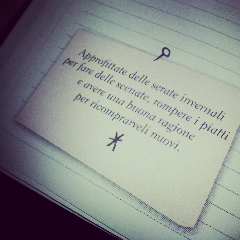 Approfittate delle serate invernali
per fare delle scenate, rompere i piatti
e avere una buona ragione
per ricomprarveli nuovi.